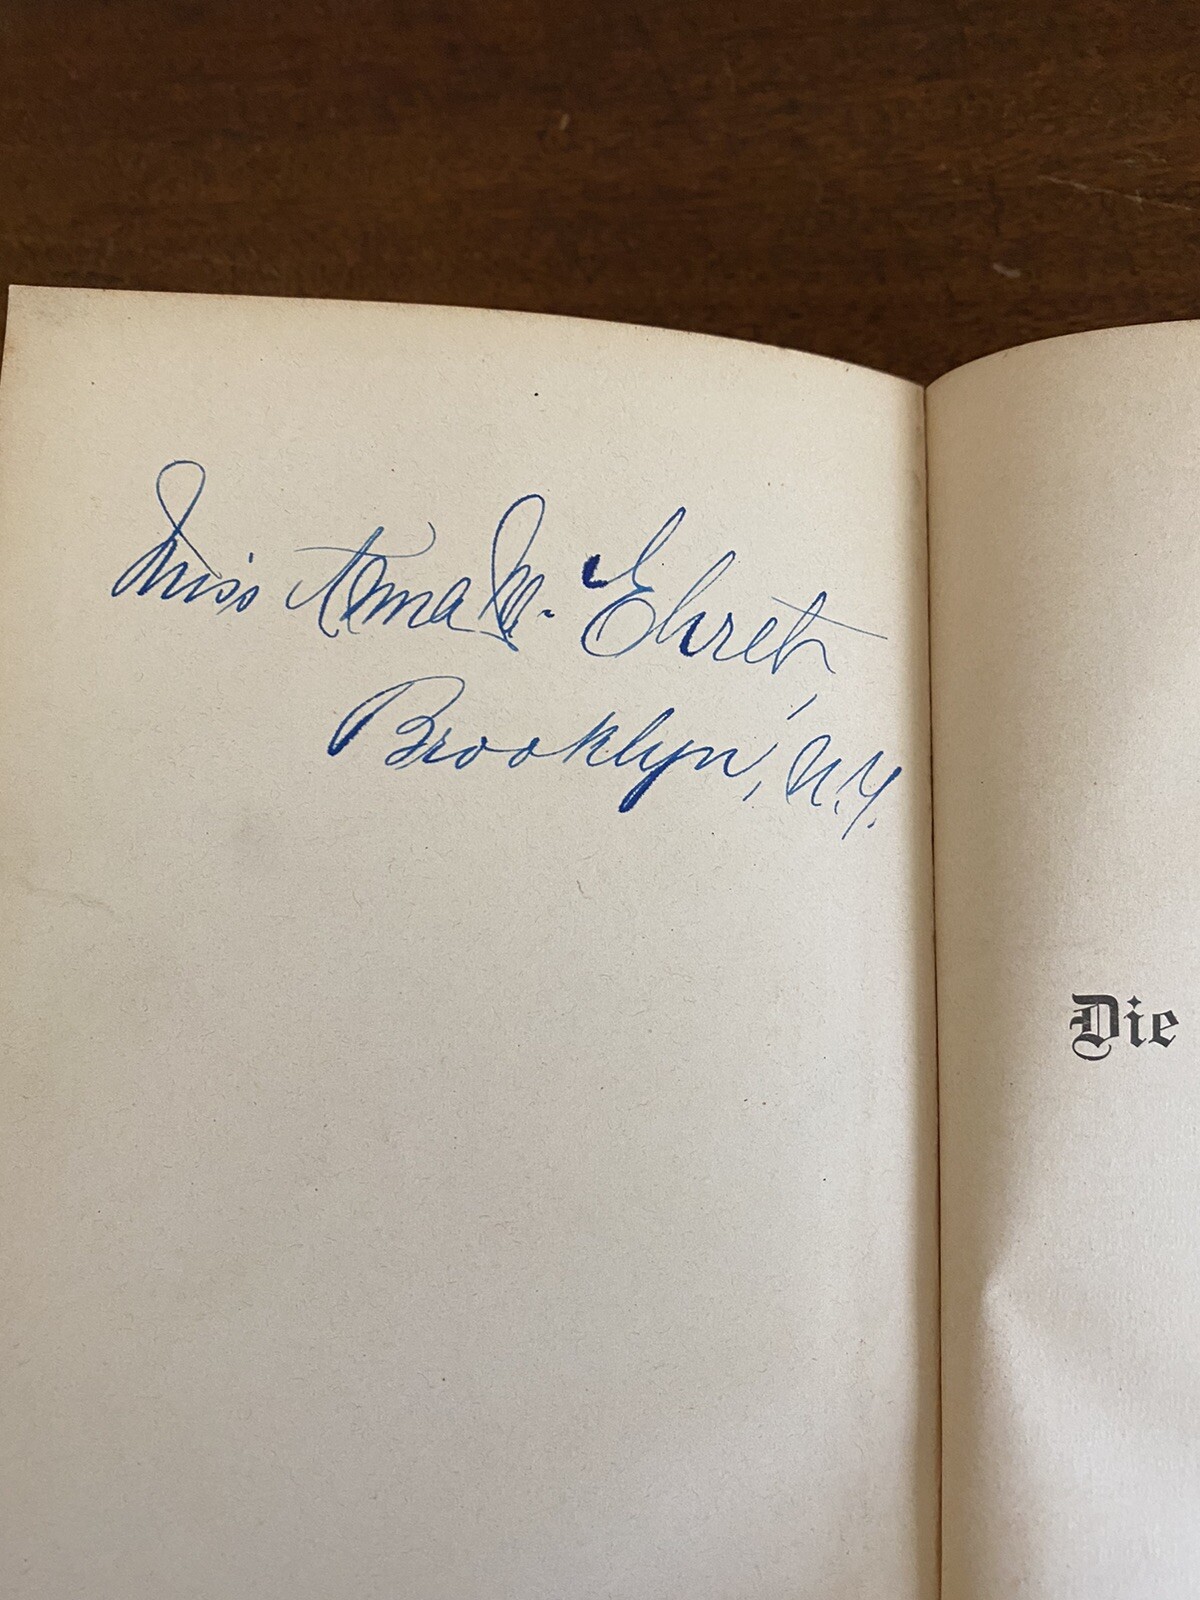 Miss Anna M. Ehret,
Brooklyn, N.Y.
Die